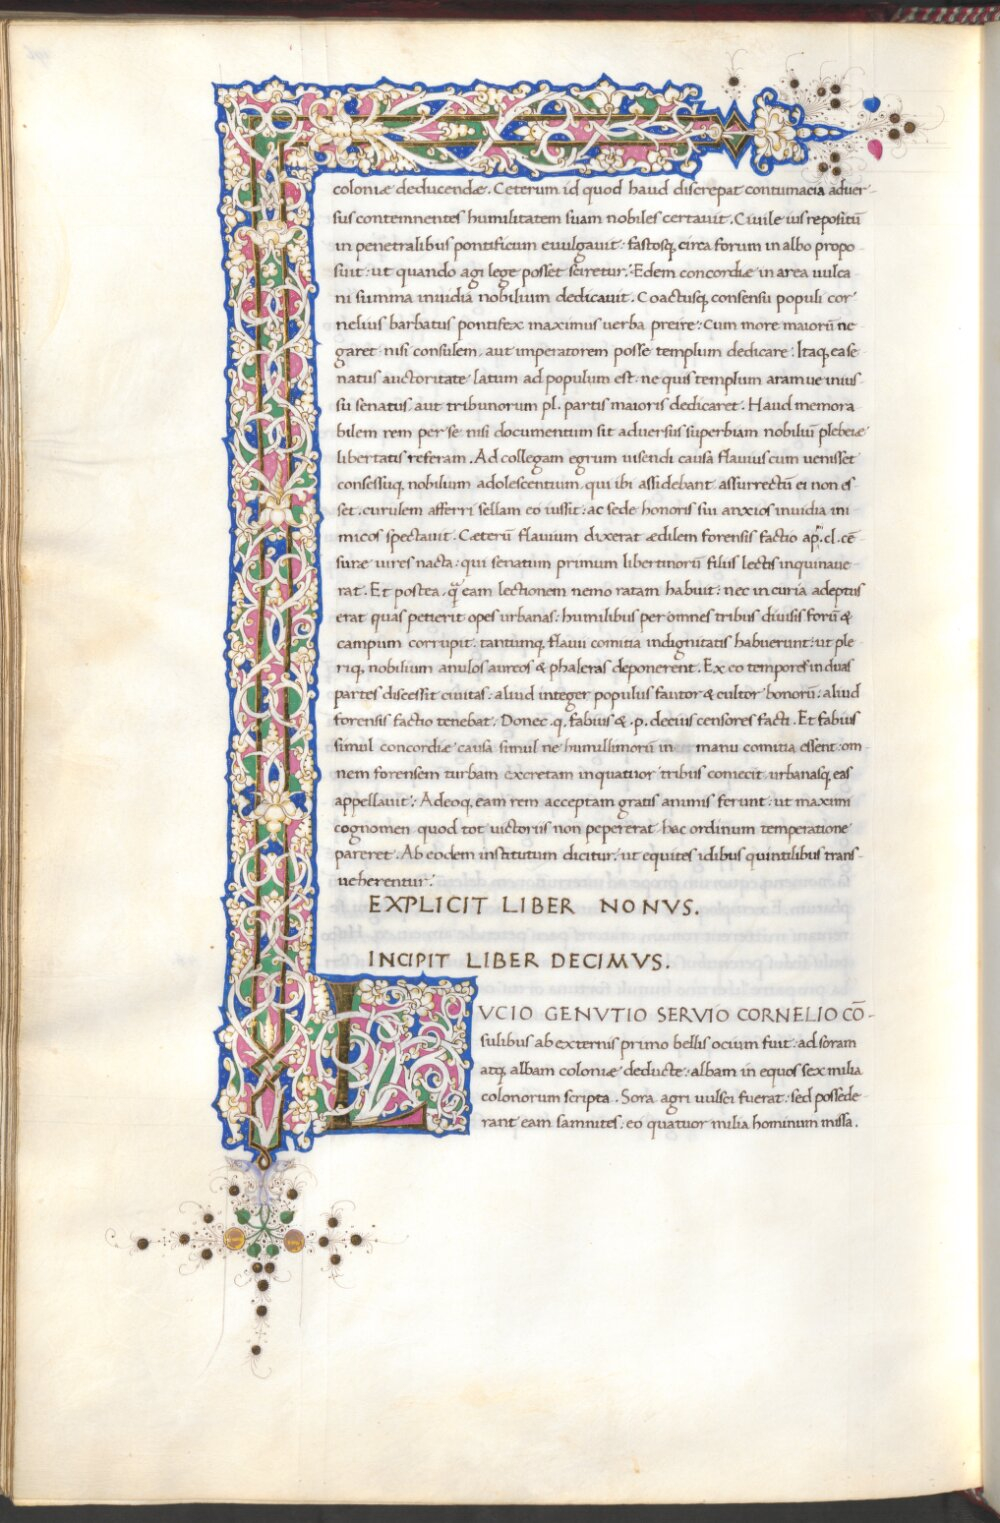 coloniæ deducendæ. Ceterum id quod haud discrepat contumacia aduer
sus contemnentes humilitatem suam nobiles certauit. Ciuile ius repositũ
in penetralibus pontificum euulgauit: fastosq; circa forum in albo propo
suit: ut quando agi lege posset sciretur. Edem concordiæ in area uulca
ni summa inuidia nobilium dedicauit. Coactusq; consensu populi cor
nelius barbatus pontifex maximus uerba preire: Cum more maiorũ ne
garet nisi consulem, aut imperatorem posse templum dedicare: Itaq; ea se
natus auctoritate latum ad populum est. ne quis templum aramue inius
su senatus, aut tribunorum pl. partis maioris dedicaret. Haud memora
bilem rem per se nisi documentum sit aduersus superbiam nobiliũ plebeiæ
libertatis referam. Ad collegam egrum uisendi causa flauius cum uenisset
consessuq; nobilium adolescentum, qui ibi assidebant assurrectũ ei non es
set, curulem afferri sellam eo iussit: ac sede honoris sui anxios inuidia ini
micos spectauit. Cæterũ flauium dixerat ædilem forensis factio ap. cl. cẽ
suræ uires nacta: qui senatum primum libertinorũ filiis lectis inquinaue
rat. Et postea q̃ eam lectionem nemo ratam habuit: nec in curia adeptus
erat quas petierit opes urbanas: humilibus per omnes tribus diuisis forũ &
campum corrupit. tantumq; flauii comitia indignitatis habuerunt: ut ple
riq; nobilium anulos aureos & phaleras deponerent. Ex eo tempores in duas
partes discessit ciuitas: aliud integer populus fautor & cultor bonorũ: aliud
forensis factio tenebat. Donec .q. fabius & .p. decius censores facti. Et fabius
simul concordiæ causa simul ne humillimorũ in manu comitia essent: om
nem forensem turbam excretam in quatuor tribus coniecit urbanasq; eas
appellauit: Adeoq; eam rem acceptam gratis animis ferunt: ut maximi
cognomen quod tot uictoriis non pepererat hac ordinum temperatione
pareret. Ab eodem institutum dicitur, ut equites idibus quintilibus trans
ueherentur:
EXPLICIT LIBER NONVS.
INCIPIT LIBER DECIMVS.
LVCIO GENVTIO SERVIO CORNELIO CÕ
sulibus ab externis primo bellis ocium fuit: ad soram
atq; albam coloniæ deductæ: albam in equos sex milia
colonorum scripta. Sora agri uulsci fuerat: sed possede
rant eam samnites, eo quatuor milia hominum missa.